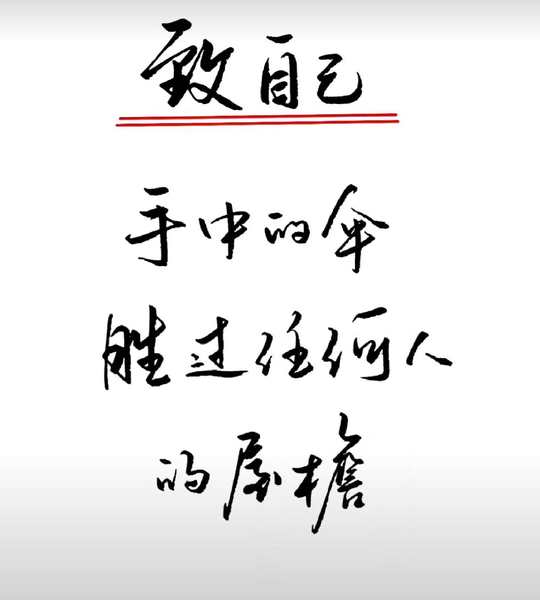 致自己
手中的伞
胜过任何人
的屋檐